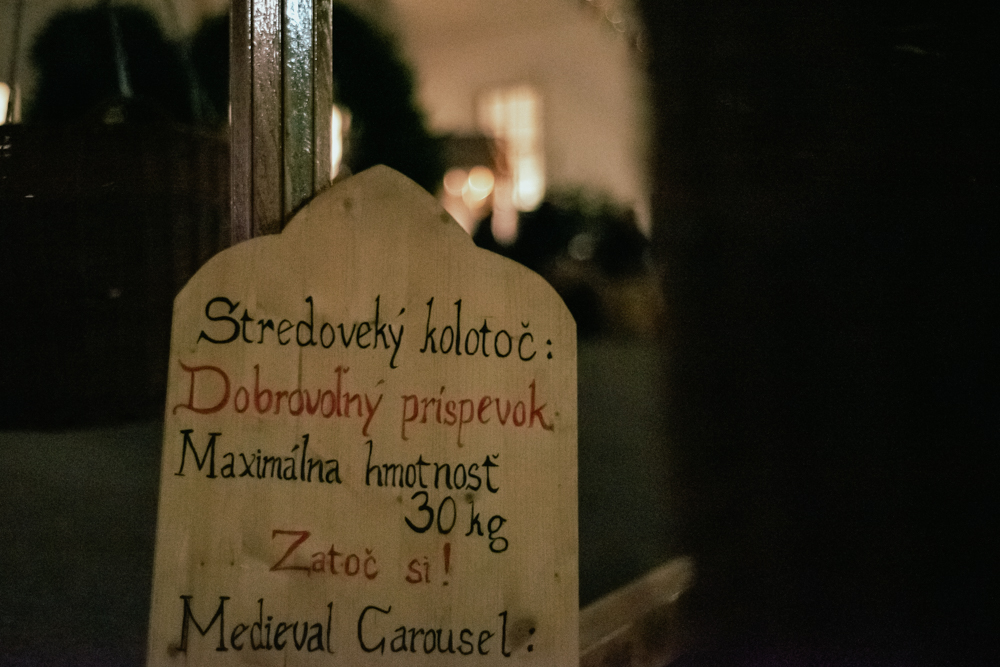 Stredoveký kolotoč:
Dobrovoľný príspevok
Maximálna hmotnosť
30 kg
Zatoč si!
Medieval Carousel: